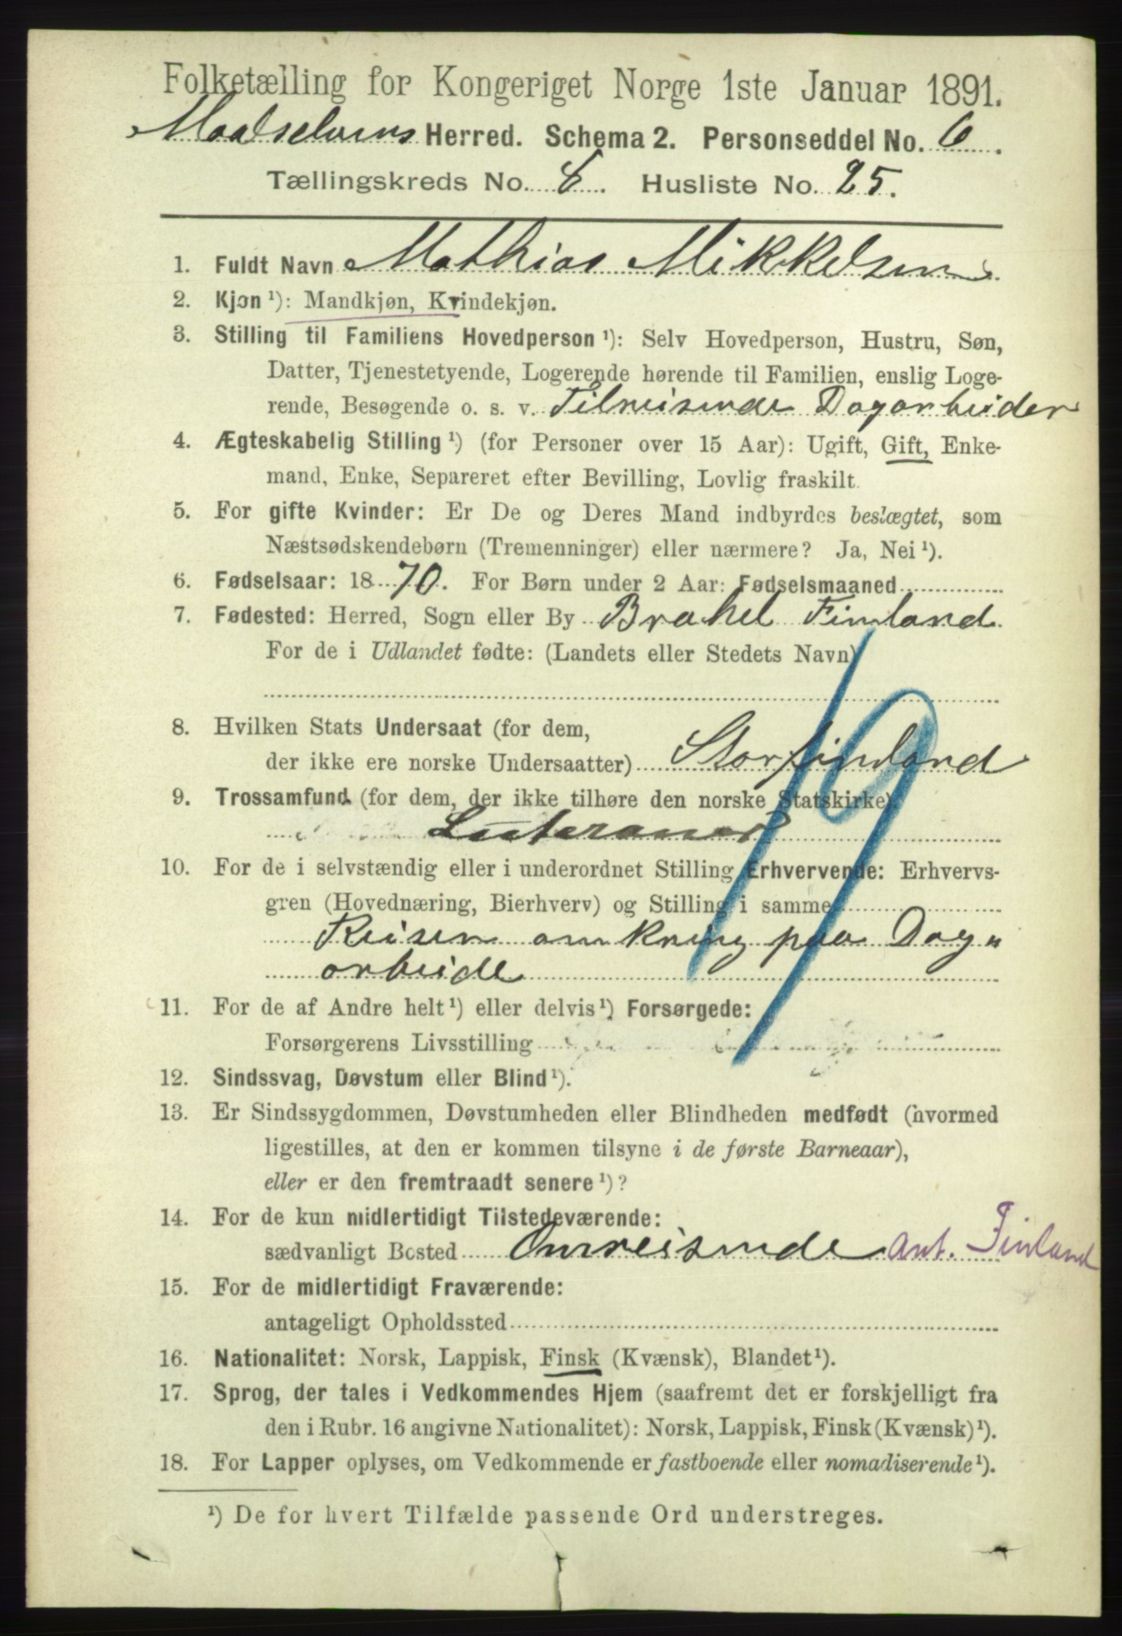 Folketælling for Kongeriget Norge 1ste Januar 1891.
Maalselvens Herred. Schema 2. Personseddel No. 6.
Tællingskreds No. 8. Husliste No. 25.
1. Fuldt Navn Mathias Mikkelsen.
2. Kjøn ¹): Mandkjøn, Kvindekjøn.
3. Stilling til Familiens Hovedperson ¹): Selv Hovedperson, Hustru, Søn,
Datter, Tjenestetyende, Logerende hørende til Familien, enslig Loge-
rende, Besøgende o. s. v. Tilreisende Dagarbeider
4. Ægteskabelig Stilling ¹) (for Personer over 15 Aar): Ugift, Gift, Enke-
mand, Enke, Separeret efter Bevilling, Lovlig fraskilt.
5. For gifte Kvinder: Er De og Deres Mand indbyrdes beslægtet, som
Næstsødskendebørn (Tremenninger) eller nærmere? Ja, Nei ¹).
6. Fødselsaar: 1870. For Børn under 2 Aar: Fødselsmaaned
7. Fødested: Herred, Sogn eller By Brahel Finland.
For de i Udlandet fødte: (Landets eller Stedets Navn)
8. Hvilken Stats Undersaat (for dem,
der ikke ere norske Undersaatter) Storfinland
9. Trossamfund (for dem, der ikke tilhøre den norske Statskirke)
Luteraner
10. For de i selvstændig eller i underordnet Stilling Erhvervende: Erhvervs-
gren (Hovednæring, Bierhverv) og Stilling i samme
Reisen omkring paa Dag"
arbeide
19
11. For de af Andre helt ¹) eller delvis ¹) Forsørgede:
Forsørgerens Livsstilling
12. Sindssvag, Døvstum eller Blind ¹).
13. Er Sindssygdommen, Døvstumheden eller Blindheden medfødt (hvormed
ligestilles, at den er kommen tilsyne i de første Barneaar),
eller er den fremtraadt senere ¹)?
14. For de kun midlertidigt Tilstedeværende:
sædvanligt Bosted Omreisende ant. Finland
15. For de midlertidigt Fraværende:
antageligt Opholdssted
16. Nationalitet: Norsk, Lappisk, Finsk (Kvænsk), Blandet ¹).
17. Sprog, der tales i Vedkommendes Hjem (saafremt det er forskjelligt fra
den i Rubr. 16 angivne Nationalitet): Norsk, Lappisk, Finsk (Kvænsk) ¹).
18. For Lapper oplyses, om Vedkommende er fastboende eller nomadiserende ¹).
¹) De for hvert Tilfælde passende Ord understreges.